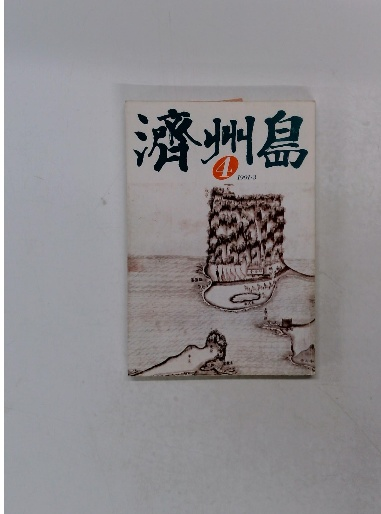 濟州島
4
1991·3